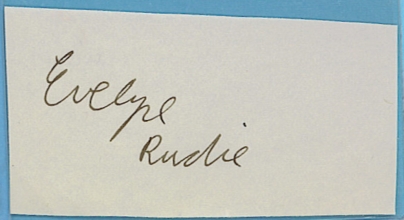 Evelyne
Rudie